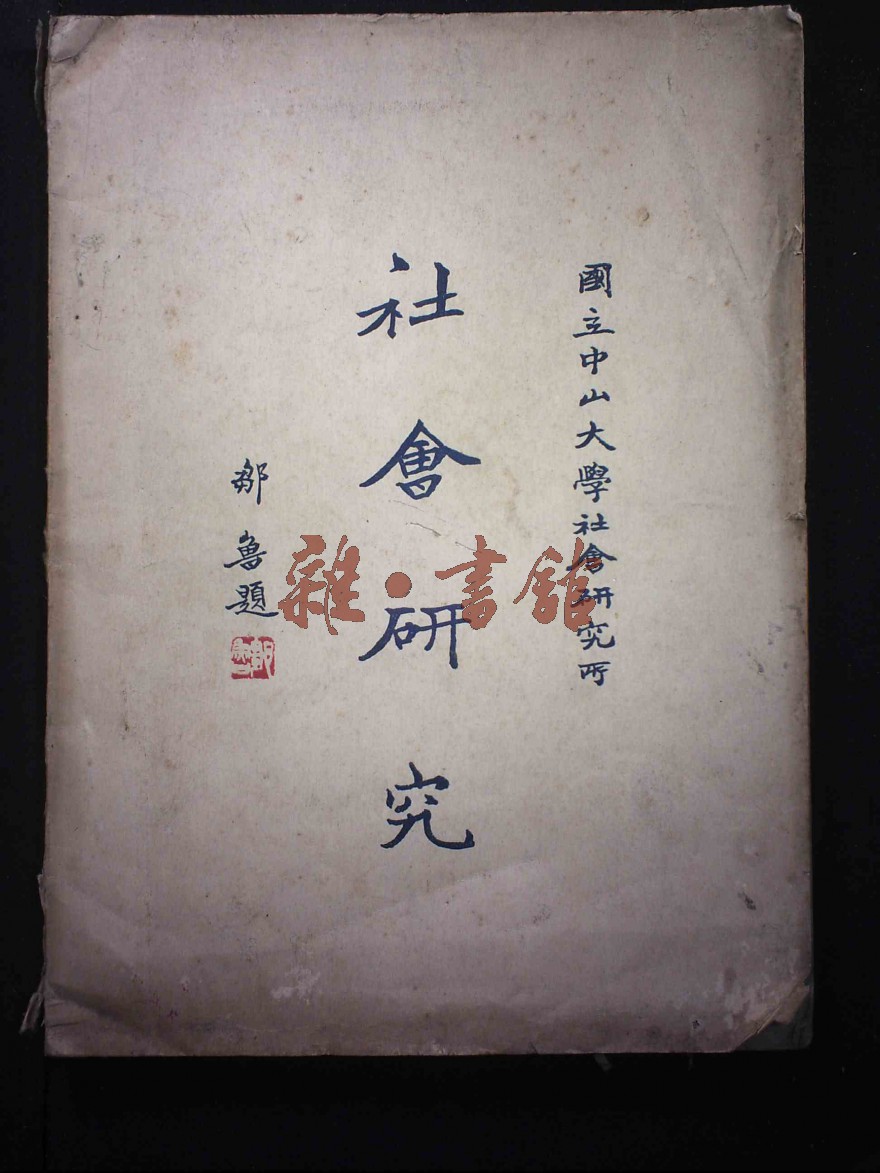 國立中山大學社會研究所
社會研究
鄒魯題
雜•書館